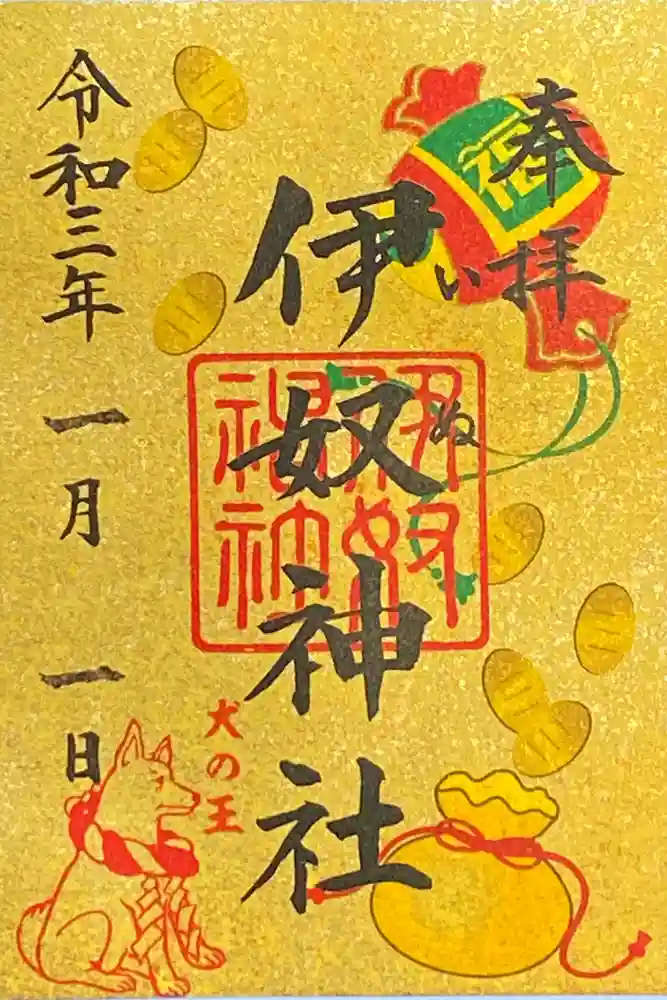 奉拝
福
伊奴神社
いぬ
犬の王
令和三年一月一日